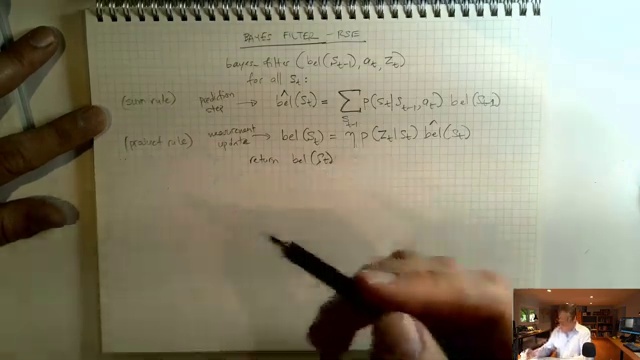 BAYES FILTER - RSE
bayes filter (bel(St-1), at, Zt)
for all St:
(sum rule) prediction step → bel̂(St) = ∑St-1 p(St|St-1, at) bel(St-1)
(product rule) measurement update → bel(St) = η p(Zt|St) bel̂(St)
return bel(St)